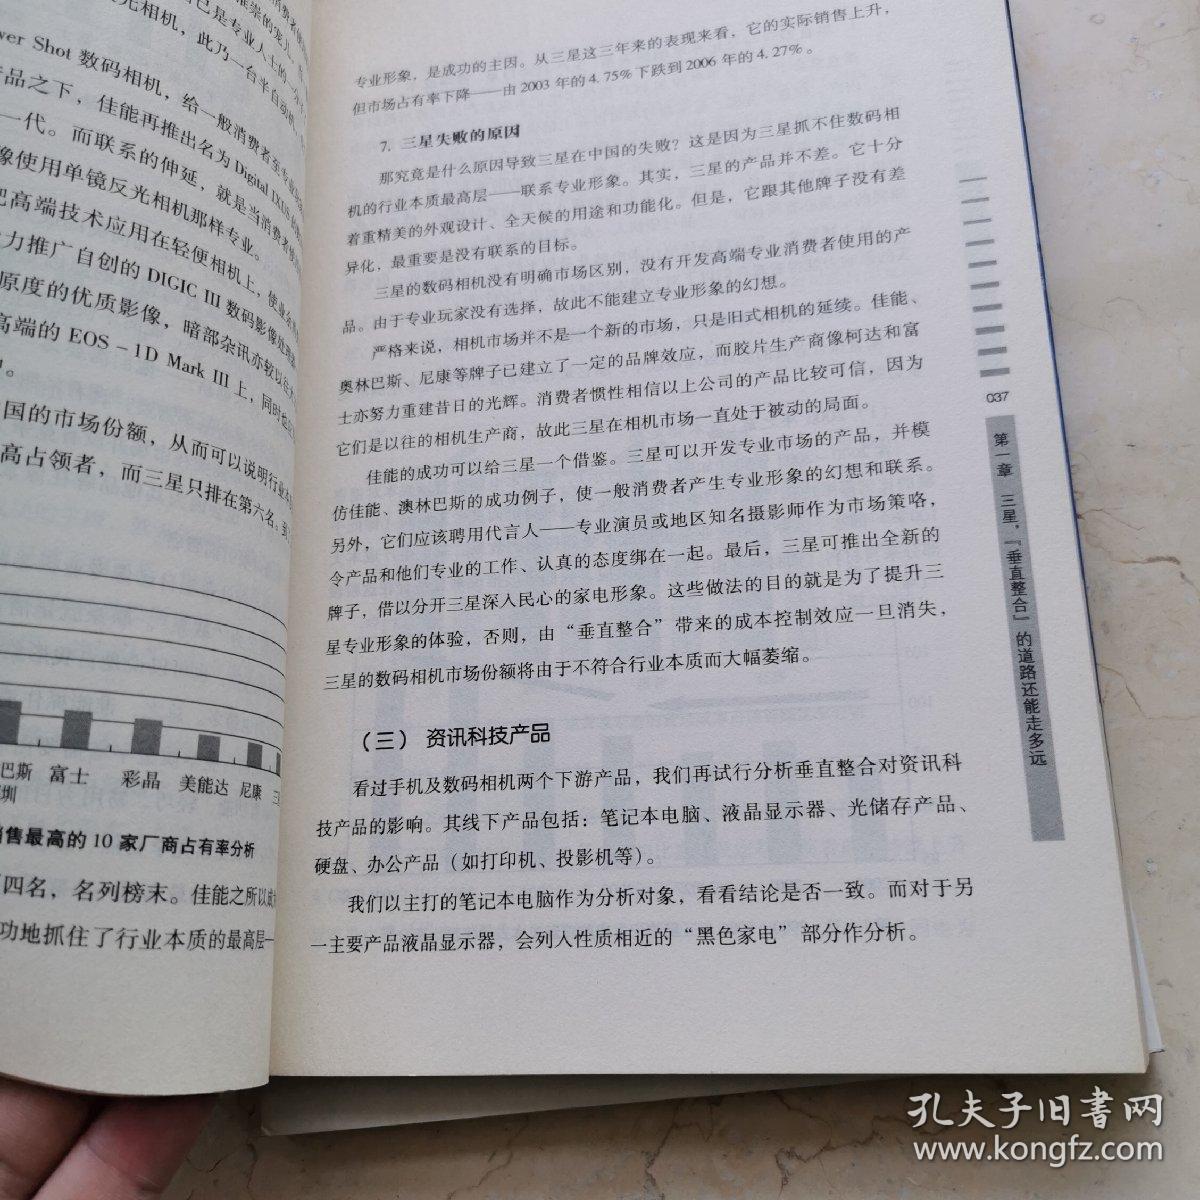 wer Shot 数码相机，给一般消费者至专业
产品之下，佳能再推出名为 Digital IXUS 的
一代。而联系的伸延，就是当消费者使
像使用单镜反光相机那样专业。
把高端技术应用在轻便相机上，使业余
力推广自创的 DIGIC III 数码影像处理
原度的优质影像，暗部杂讯亦较以往
高端的 EOS－1D Mark III 上，同时
国的市场份额，从而可以说明行业本
高占领者，而三星只排在第六名。
巴斯 富士 彩晶 美能达 尼康 三
圳
销售最高的 10 家厂商占有率分析
四名，名列榜末。佳能之所以成
功地抓住了行业本质的最高层—
专业形象，是成功的主因。从三星这三年来的表现来看，它的实际销售上升，
但市场占有率下降——由 2003 年的 4.75% 下跌到 2006 年的 4.27%。
7. 三星失败的原因
那究竟是什么原因导致三星在中国的失败？这是因为三星抓不住数码相
机的行业本质最高层——联系专业形象。其实，三星的产品并不差。它十分
着重精美的外观设计、全天候的用途和功能化。但是，它跟其他牌子没有差
异化，最重要是没有联系的目标。
三星的数码相机没有明确市场区别，没有开发高端专业消费者使用的产
品。由于专业玩家没有选择，故此不能建立专业形象的幻想。
严格来说，相机市场并不是一个新的市场，只是旧式相机的延续。佳能、
奥林巴斯、尼康等牌子已建立了一定的品牌效应，而胶片生产商像柯达和富
士亦努力重建昔日的光辉。消费者惯性相信以上公司的产品比较可信，因为
它们是以往的相机生产商，故此三星在相机市场一直处于被动的局面。
佳能的成功可以给三星一个借鉴。三星可以开发专业市场的产品，并模
仿佳能、澳林巴斯的成功例子，使一般消费者产生专业形象的幻想和联系。
另外，它们应该聘用代言人——专业演员或地区知名摄影师作为市场策咯，
令产品和他们专业的工作、认真的态度绑在一起。最后，三星可推出全新的
牌子，借以分开三星深入民心的家电形象。这些做法的目的就是为了提升三
星专业形象的体验，否则，由“垂直整合”带来的成本控制效应一旦消失，
三星的数码相机市场份额将由于不符合行业本质而大幅萎缩。
（三） 资讯科技产品
看过手机及数码相机两个下游产品，我们再试行分析垂直整合对资讯科
技产品的影响。其线下产品包括：笔记本电脑、液晶显示器、光储存产品、
硬盘、办公产品（如打印机、投影机等）。
我们以主打的笔记本电脑作为分析对象，看看结论是否一致。而对于另
一主要产品液晶显示器，会列入性质相近的“黑色家电”部分作分析。
037
第一章 三星，『垂直整合』的道路还能走多远
孔夫子旧书网
www.kongfz.com